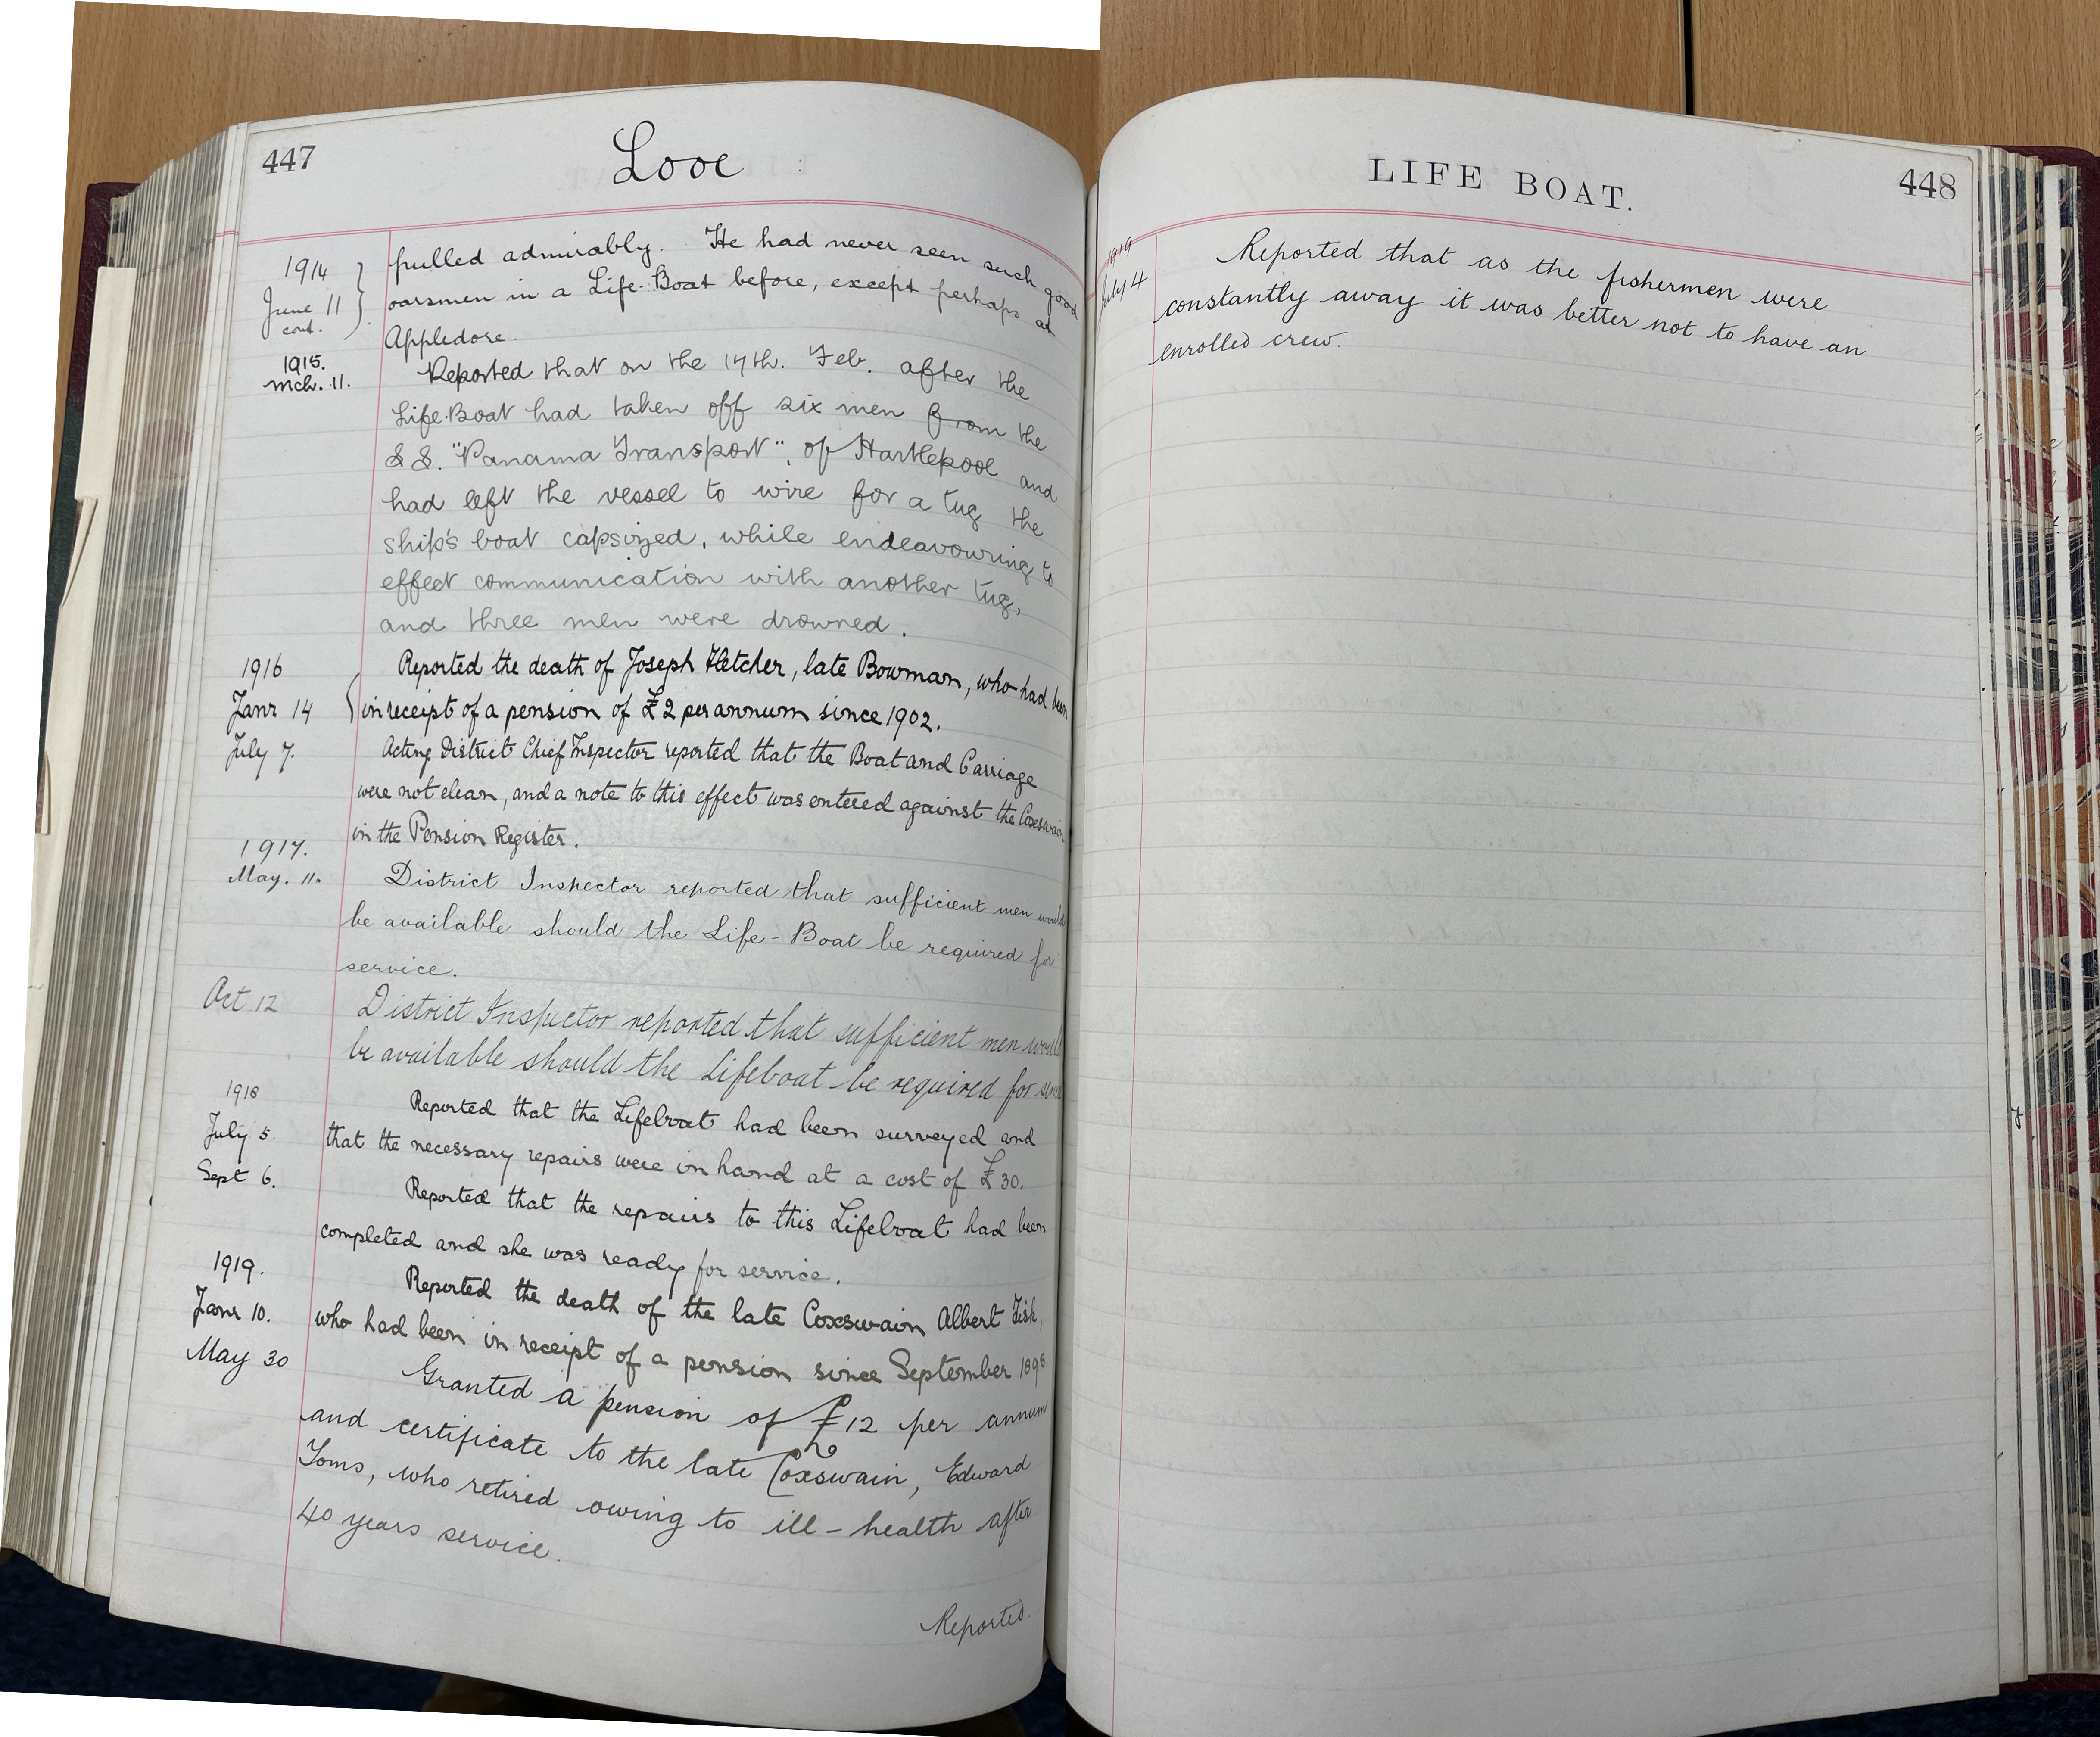 447
Looe
1914
June 11
cont.
pulled admirably. He had never seen such good
oarsmen in a Life-Boat before, except perhaps at
Appledore.
1915.
Mch. 11.
Reported that on the 17th. Feb. after the
Life-Boat had taken off six men from the
S.S. "Panama Transport", of Hartlepool and
had left the vessel to wire for a tug the
ship's boat capsized, while endeavouring to
effect communication with another tug,
and three men were drowned.
1916
Janr 14
Reported the death of Joseph Fletcher, late Bowman, who had been
in receipt of a pension of £2 per annum since 1902.
July 7.
Acting District Chief Inspector reported that the Boat and Carriage
were not clean, and a note to this effect was entered against the Coxswain
in the Pension Register.
1917.
May. 11.
District Inspector reported that sufficient men would
be available should the Life-Boat be required for
service.
Oct 12
District Inspector reported that sufficient men would
be available should the Lifeboat be required for service
1918
July 5.
Reported that the Lifeboat had been surveyed and
that the necessary repairs were in hand at a cost of £30.
Sept 6.
Reported that the repairs to this Lifeboat had been
completed and she was ready for service.
1919.
Janr 10.
Reported the death of the late Coxswain Albert Fisk,
who had been in receipt of a pension since September 1898.
May 30
Granted a pension of £12 per annum
and certificate to the late Coxswain, Edward
Toms, who retired owing to ill-health after
40 years service.
Reported.
LIFE BOAT.
448
1919
July 4
Reported that as the fishermen were
constantly away it was better not to have an
enrolled crew.